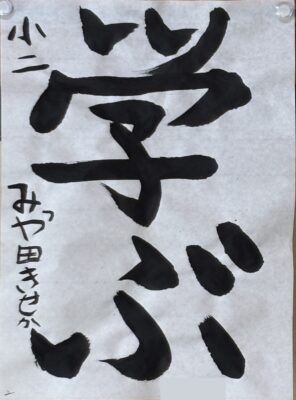 学ぶ
小二
みつや田きせか